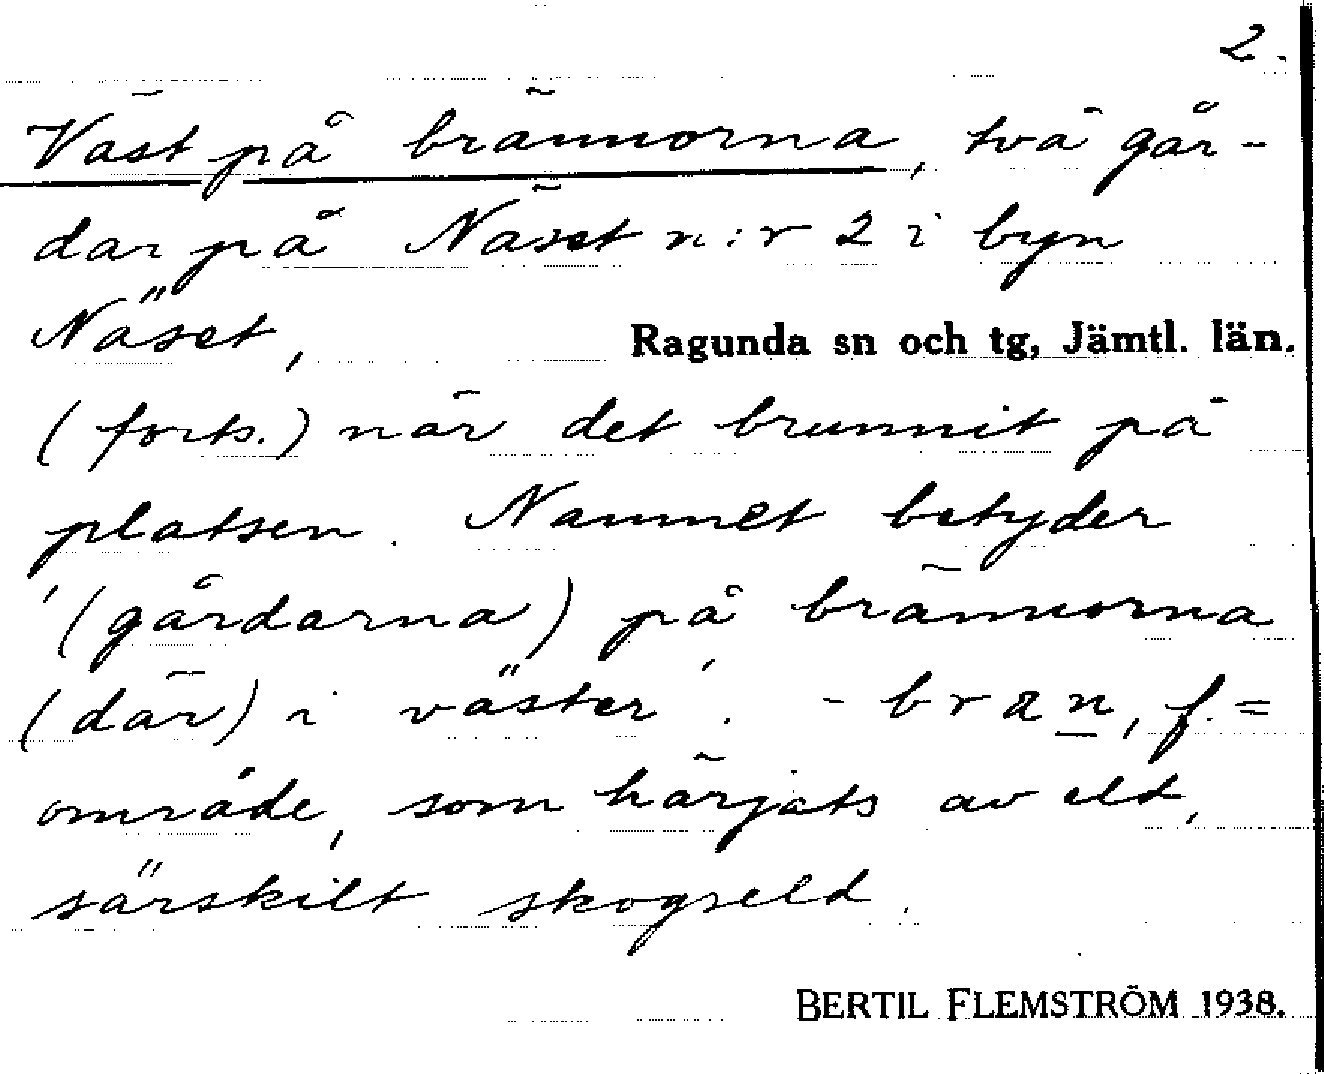 2.
Väst på brännorna, två går-
dar på Näset n:r 2 i byn
Näset, Ragunda sn och tg, Jämtl. län.
(forts.) när det brunnit på
platsen. Namnet betyder
'(gårdarna) på brännorna
(där) i väster'. - bran, f. =
område, som härjats av eld,
särskilt skogseld.
BERTIL FLEMSTRÖM 1938.